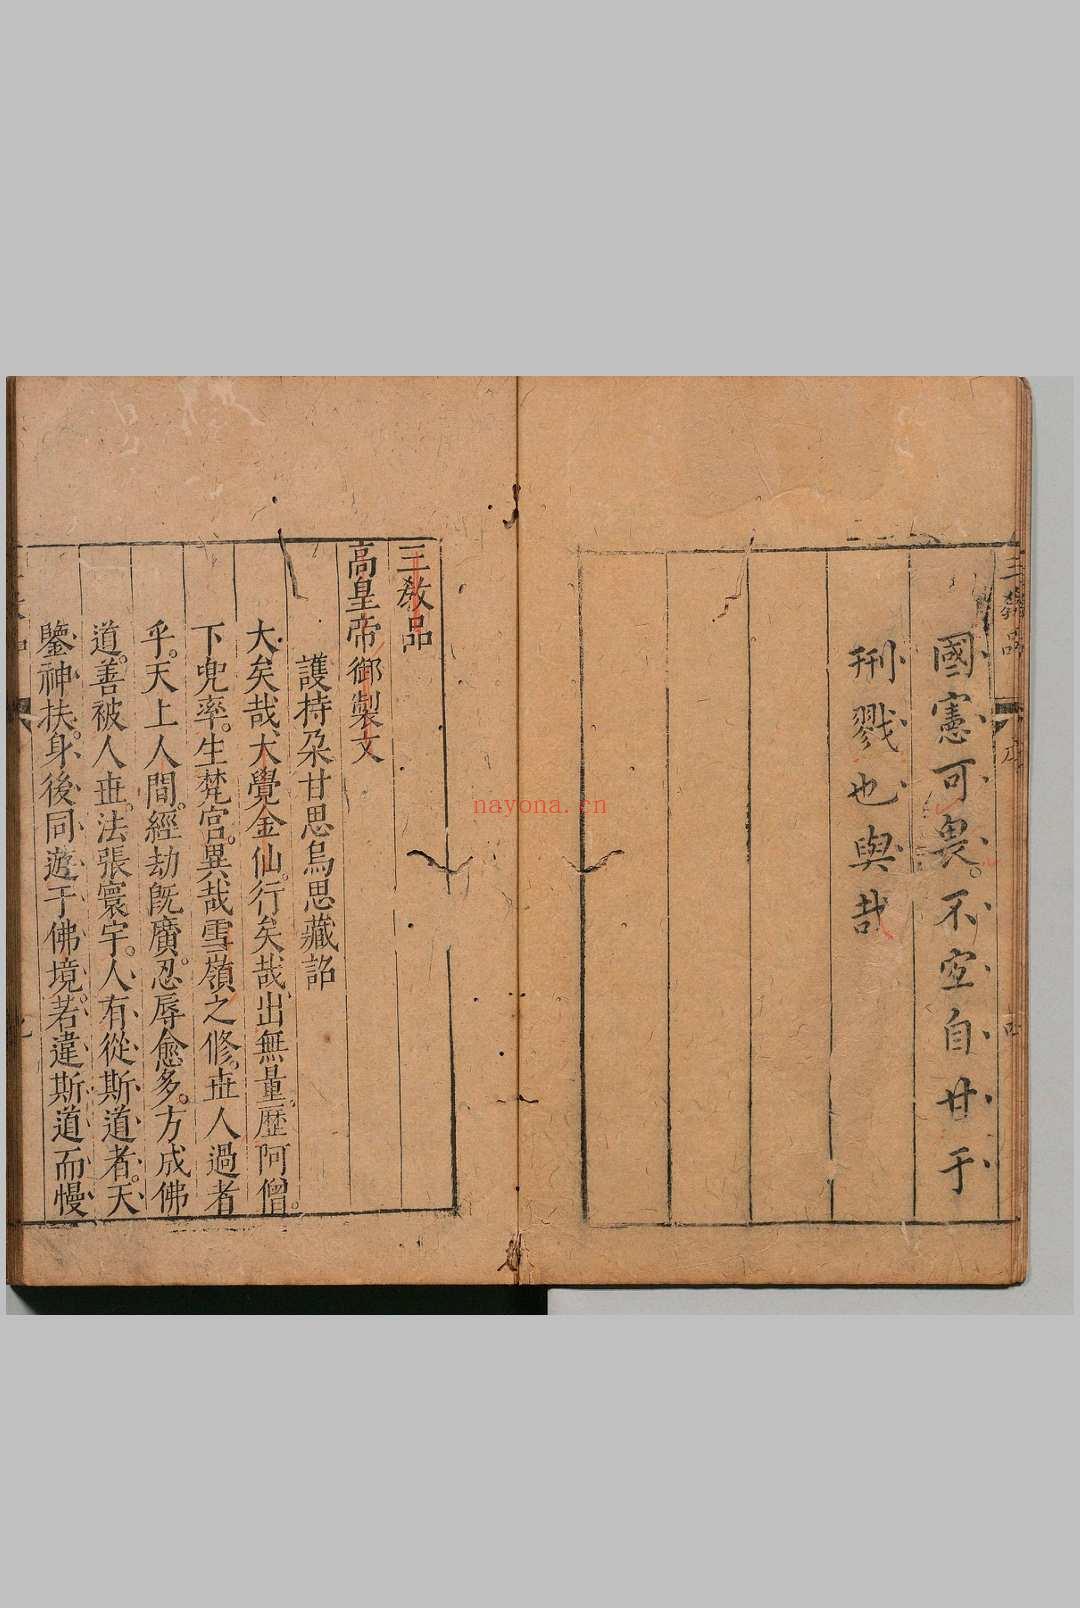 三教品
序
四
國憲可畏。不空自甘于
刑戮也與哉
三教品
高皇帝御製文
護持朶甘思烏思藏詔
大矣哉大覺金仙。行矣哉出無量。歷阿僧。
下兜率。生梵宫。異哉雪嶺之修。世人過者
乎。天上人間。經劫既廣。忍辱愈多。方成佛
道。善被人世。法張寰宇。人有從斯道者。天
鑒神扶。身後同遊于佛境。若違斯道而慢
nayona.cn